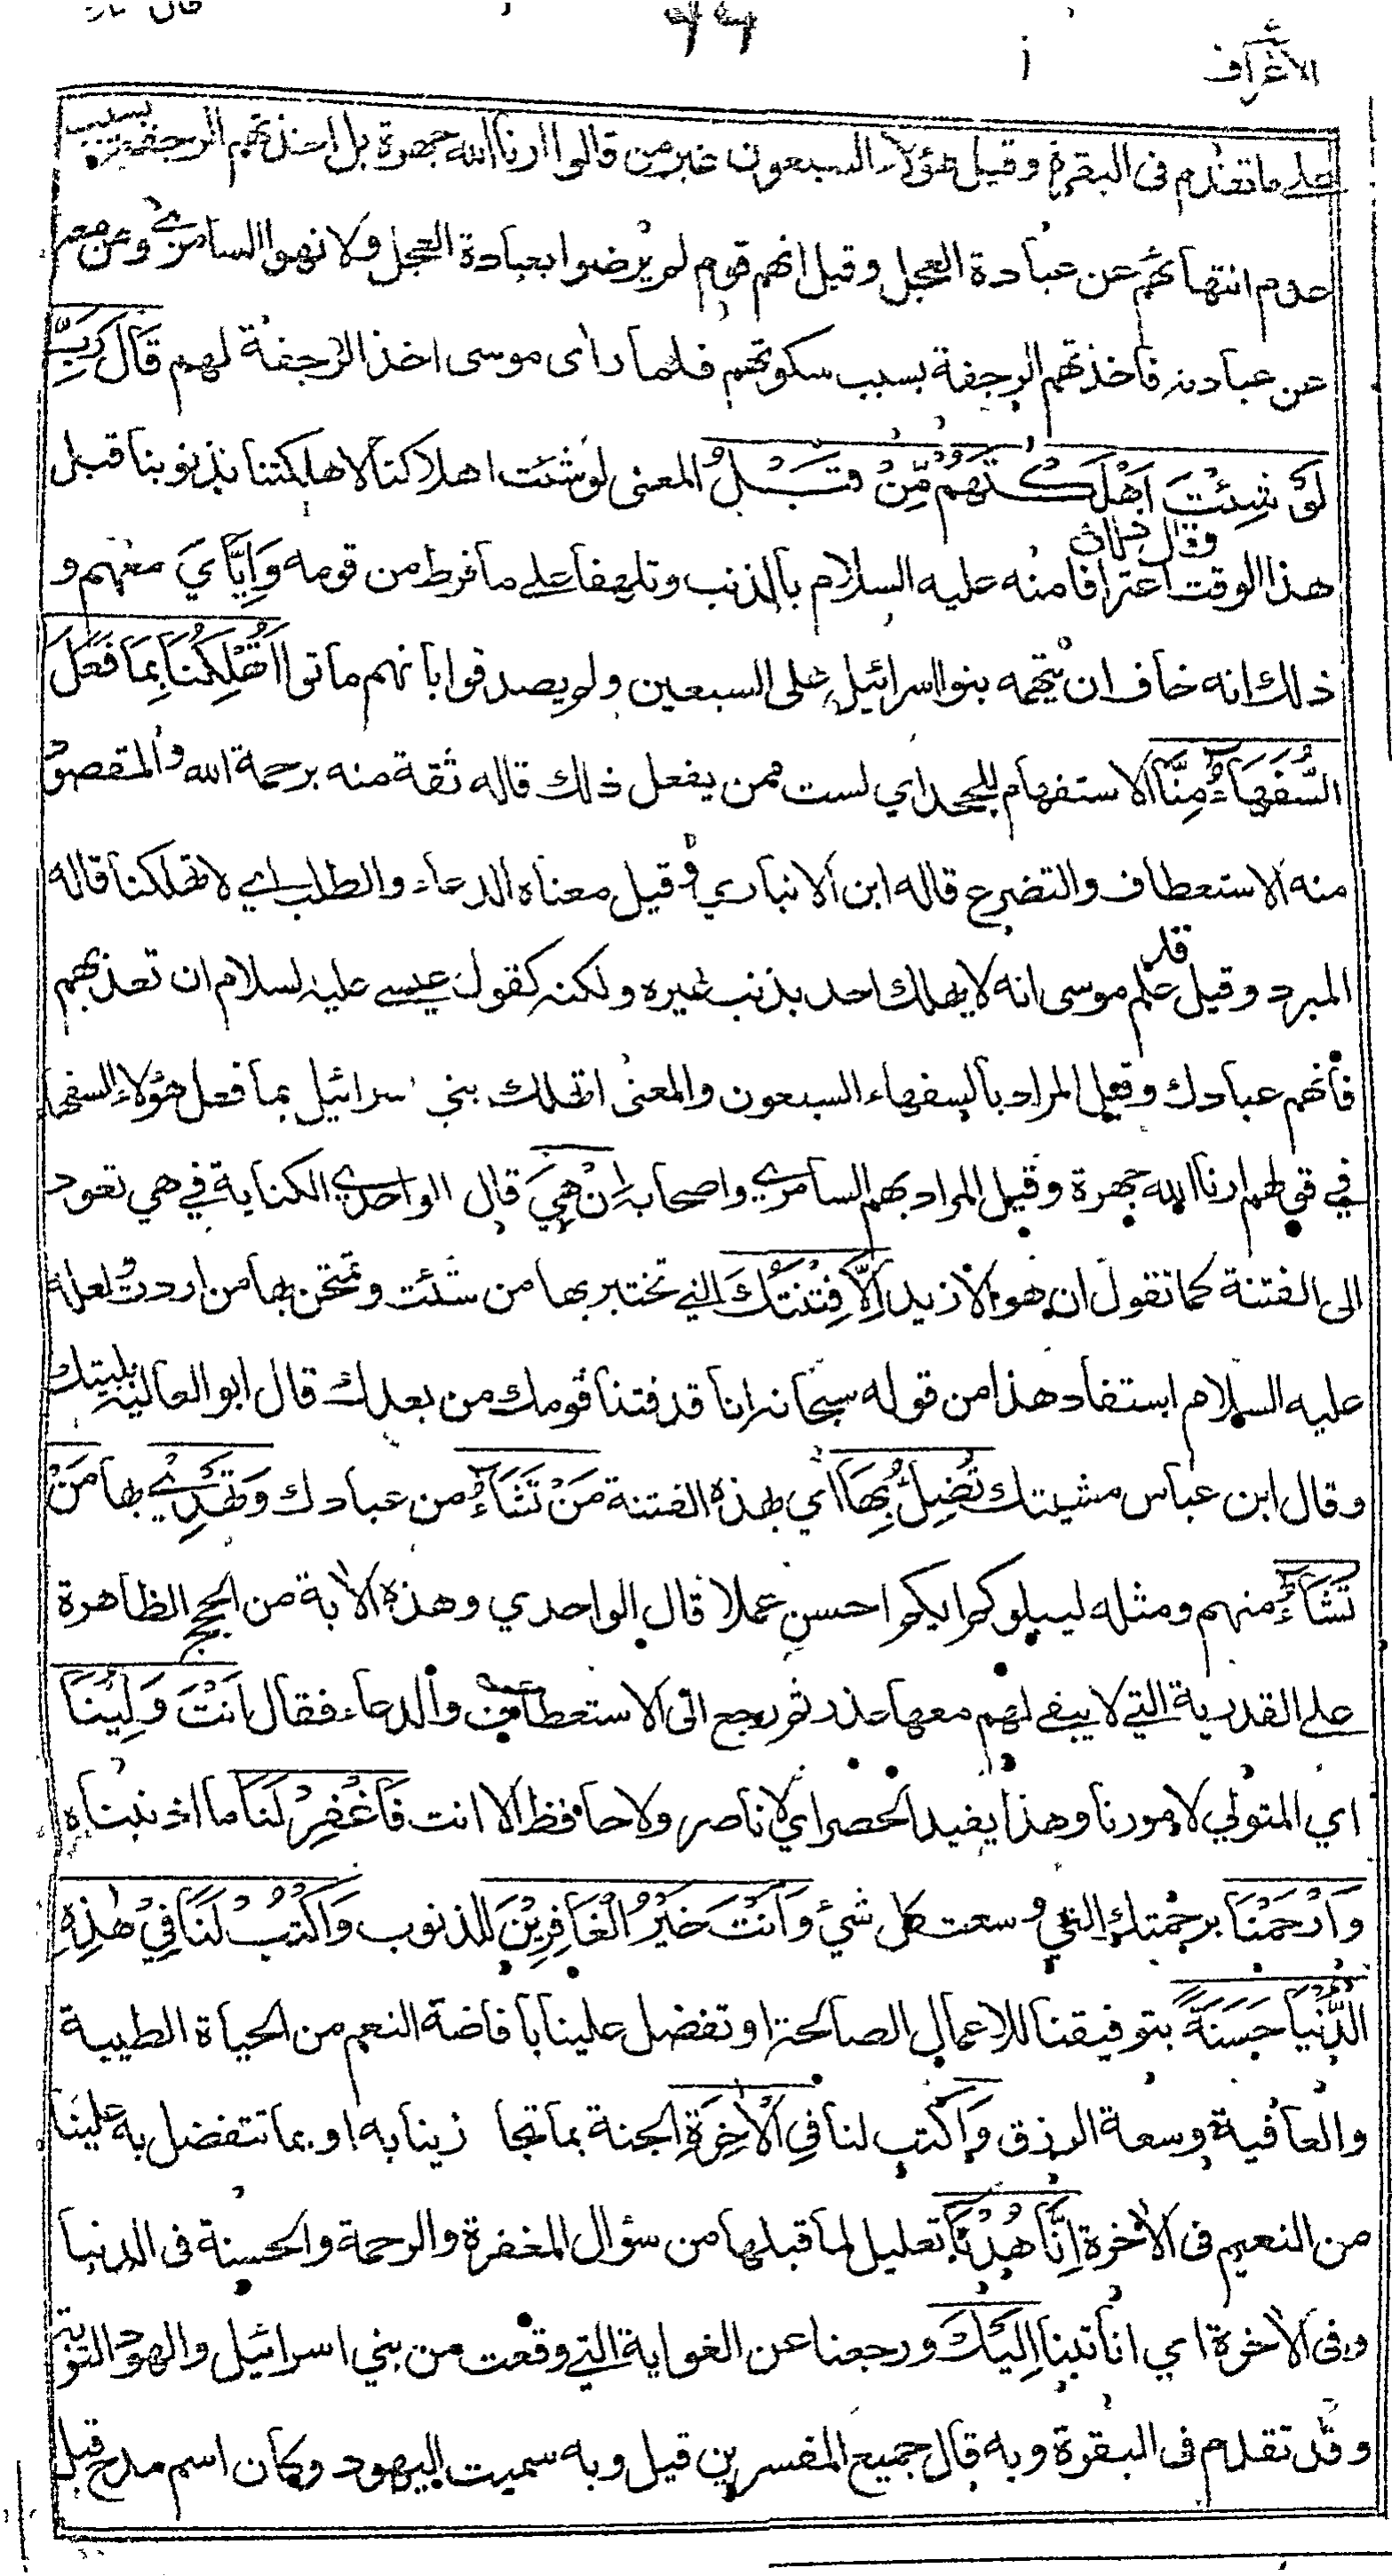 الأعراف
على ما تقدم فى البقرة وقيل هؤلاء السبعون غير من قالوا ارنا الله جهرة بل اخذتهم الرجفة بسبب
عدم انتهائهم عن عبادة العجل وقيل انهم قوم لم يرضوا بعبادة العجل ولا نهوا السامري ومن معه
عن عبادته فاخذتهم الرجفة بسبب سكوتهم فلما راى موسى اخذ الرجفة لهم قَالَ رَبِّ
لَوْ شِئْتَ اَهْلَكْتَهُمْ مِّنْ قَبْلُ المعنى لو شئت اهلاكنا لاهلكتنا بذنوبنا قبل
هذا الوقت اعترافا منه عليه السلام بالذنب وتلهفا على ما فرط من قومه وَاِيَّايَ معهم و
ذلك انه خاف ان يتهمه بنو اسرائيل على السبعين ولم يصدقوا بانهم ماتوا اَتُهْلِكُنَا بِمَا فَعَلَ
السُّفَهَآءُ مِنَّا الاستفهام للجحد اي لست ممن يفعل ذلك قاله ثقة منه برحمة الله والمقصود
منه الاستعطاف والتضرع قاله ابن الانباري وقيل معناه الدعاء والطلب اي لا تهلكنا قاله
المبرد وقيل قد علم موسى انه لا يهلك احد بذنب غيره ولكنه كقول عيسى عليه السلام ان تعذبهم
فانهم عبادك وقيل المراد بالسفهاء السبعون والمعنى اتهلك بني اسرائيل بما فعل هؤلاء السفهاء
في قولهم ارنا الله جهرة وقيل المراد بهم السامري واصحابه اِنْ هِيَ قال الواحدي الكناية في هي تعود
الى الفتنة كما تقول ان هو الا زيد اِلَّا فِتْنَتُكَ التي تختبر بها من شئت وتمتحن بها من اردت لعله
عليه السلام استفاد هذا من قوله سبحانه انا قد فتنا قومك من بعدك قال ابو العالية بليتك
وقال ابن عباس مشيئتك تُضِلُّ بِهَا اي بهذه الفتنة مَنْ تَشَآءُ من عبادك وَتَهْدِيْ بها مَنْ
تَشَآءُ منهم ومثله ليبلوكم ايكم احسن عملا قال الواحدي وهذه الاية من الحجج الظاهرة
على القدرية التي لا يبقى لهم معها عذر ثم رجع الى الاستعطاف والدعاء فقال اَنْتَ وَلِيُّنَا
اي المتولي لامورنا وهذا يفيد الحصر اي لا ناصر ولا حافظ الا انت فَاغْفِرْ لَنَا ما اذنبناه
وَارْحَمْنَا برحمتك التي وسعت كل شئ وَاَنْتَ خَيْرُ الْغَافِرِيْنَ للذنوب وَاكْتُبْ لَنَا فِيْ هٰذِهِ
الدُّنْيَا حَسَنَةً بتوفيقنا للاعمال الصالحة او تفضل علينا بافاضة النعم من الحياة الطيبة
والعافية وسعة الرزق وَاكتب لنا فِي الْاٰخِرَةِ الجنة بما تجازينا به او بما تتفضل به علينا
من النعيم فى الاخرة اِنَّا هُدْنَا تعليل لما قبلها من سؤال المغفرة والرحمة والحسنة فى الدنيا
وفى الاخرة اي انا تبنا اِلَيْكَ ورجعنا عن الغواية التي وقعت من بني اسرائيل والهود التوبة
وقد تقدم فى البقرة وبه قال جميع المفسرين قيل وبه سميت اليهود وكان اسم مدح قبل